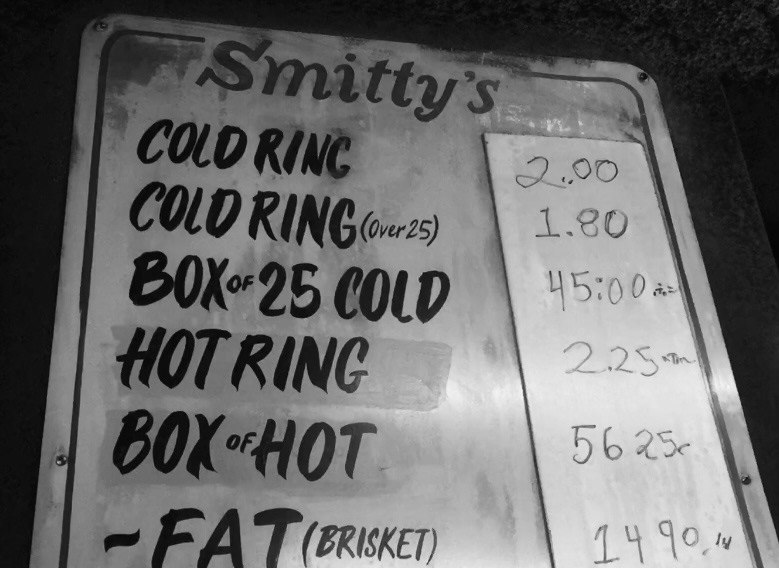 Smitty's
COLD RING 2.00
COLD RING (Over 25) 1.80
BOX OF 25 COLD 45:00
HOT RING 2.25
BOX OF HOT 56 25
~FAT (BRISKET) 14 90